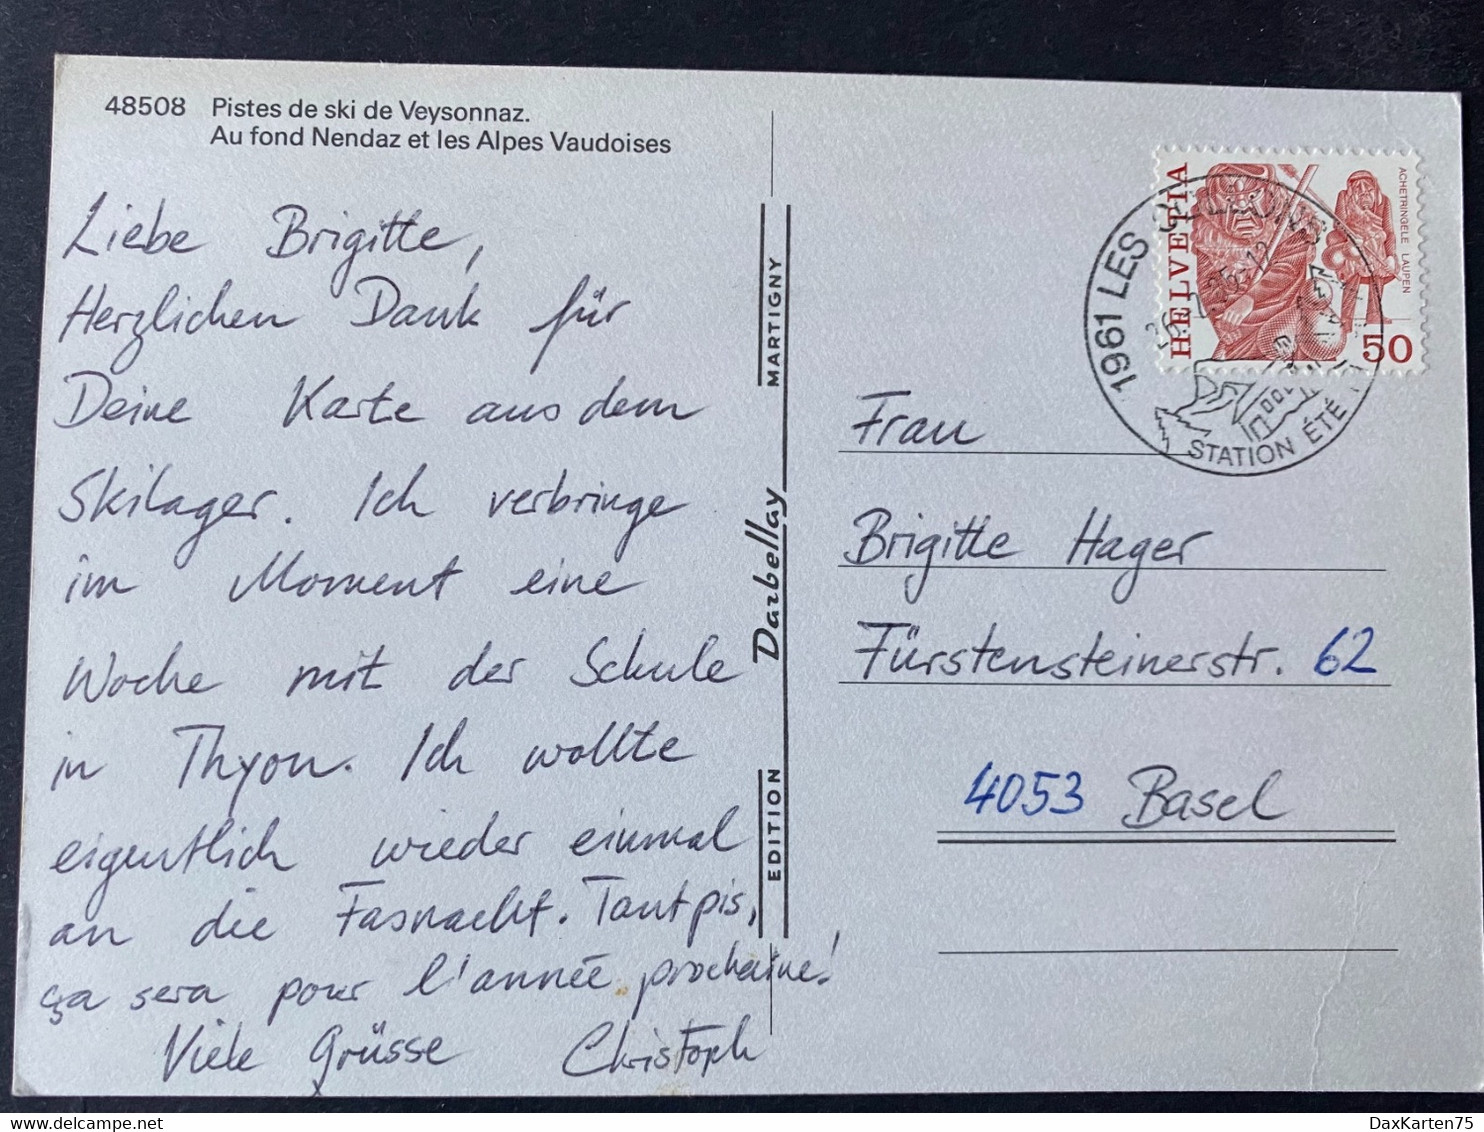 48508 Pistes de ski de Veysonnaz.
Au fond Nendaz et les Alpes Vaudoises
Liebe Brigitte,
Herzlichen Dank für
Deine Karte aus dem
Skilager. Ich verbringe
im Moment eine
Woche mit der Schule
in Thyon. Ich wollte
eigentlich wieder einmal
an die Fasnacht. Tant pis,
ça sera pour l'année prochaine!
Viele Grüsse Christoph
EDITION Darbellay MARTIGNY
HELVETIA
ACHETRINGELE LAUPEN
50
1961 LES
STATION ÉTÉ
Frau
Brigitte Hager
Fürstensteinerstr. 62
4053 Basel
DaxKarten75